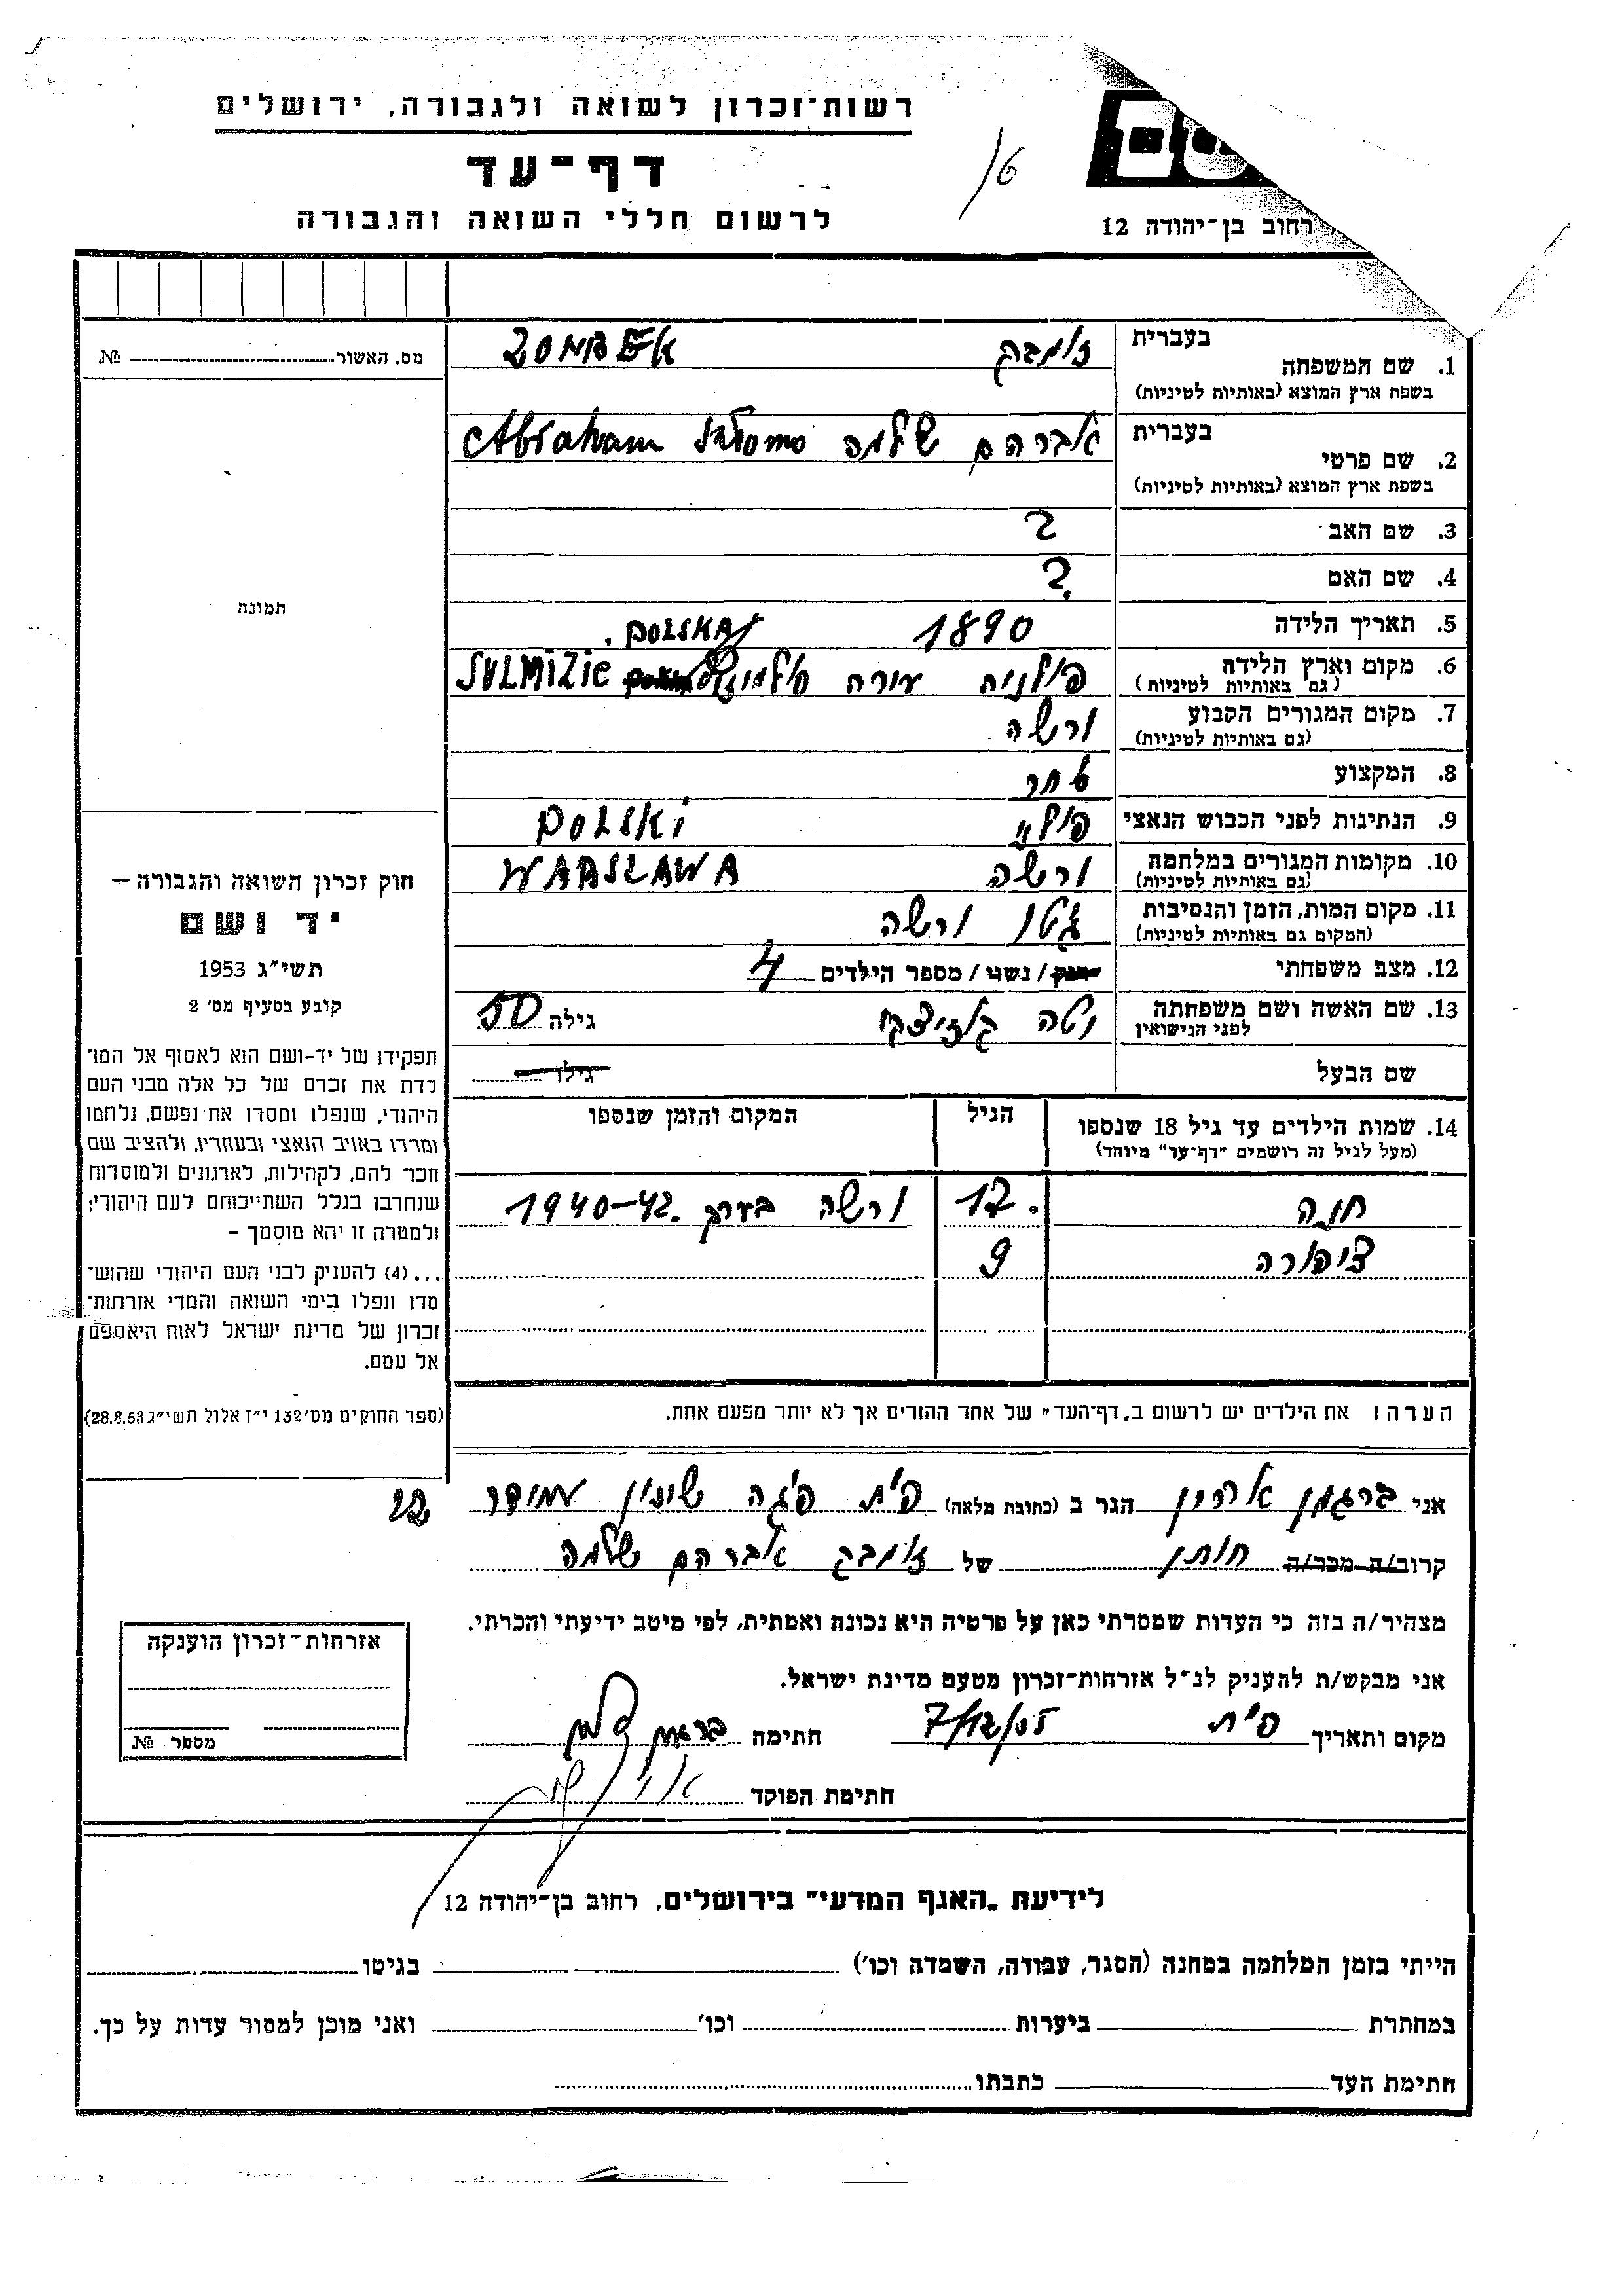 רשות־זכרון לשואה ולגבורה, ירושלים
דף־עד
לרשום חללי השואה והגבורה
רחוב בן־יהודה 12
16
מס. האשור № 
בעברית
1. שם המשפחה
בשפת ארץ המוצא (באותיות לטיניות)
זומבק ZOMBEK
בעברית
2. שם פרטי
בשפת ארץ המוצא (באותיות לטיניות)
אברהם שלמה Abraham Szlomo
3. שם האב ?
4. שם האם ?
5. תאריך הלידה 1890
POLSKA
6. מקום וארץ הלידה
(גם באותיות לטיניות)
SULMIZIE
7. מקום המגורים הקבוע
(גם באותיות לטיניות)
ורשה
8. המקצוע סחר
9. הנתינות לפני הכבוש הנאצי POLSKI
10. מקומות המגורים במלחמה
(גם באותיות לטיניות)
ורשה WARSZAWA
11. מקום המות, הזמן והנסיבות
(המקום גם באותיות לטיניות)
גטו ורשה
12. מצב משפחתי רוק / נשוי / מספר הילדים 4
13. שם האשה ושם משפחתה
לפני הנישואין
גילה 50
שם הבעל גילו
14. שמות הילדים עד גיל 18 שנספו
(מעל לגיל זה רושמים "דף־עד" מיוחד)
הגיל
המקום והזמן שנספו
חנה 17 ורשה בערך 1940-42.
ציפורה 9
הערה: את הילדים יש לרשום ב„דף־העד" של אחד ההורים אך לא יותר מפעם אחת.
תמונה
חוק זכרון השואה והגבורה —
יד ושם
תשי״ג 1953
קובע בסעיף מס' 2
תפקידו של יד-ושם הוא לאסוף אל המו־
לדת את זכרם של כל אלה מבני העם
היהודי, שנפלו ומסרו את נפשם, נלחמו
ומרדו באויב הנאצי ובעוזריו, ולהציב שם
וזכר להם, לקהילות, לארגונים ולמוסדות
שנחרבו בגלל השתייכותם לעם היהודי;
ולמטרה זו יהא מוסמך –
...(4) להעניק לבני העם היהודי שהוש־
מדו ונפלו בימי השואה והמרי אזרחות־
זכרון של מדינת ישראל לאות היאספם
אל עמם.
(ספר החוקים מס' 132 י״ז אלול תשי״ג 28.8.53)
אני ברגמן אהרון הגר ב (כתובת מלאה) פ״ת פ׳גה שיכון עמידר 22
קרוב/ה מכר/ה חותן של זומבק אברהם שלמה
מצהיר/ה בזה כי העדות שמסרתי כאן על פרטיה היא נכונה ואמתית, לפי מיטב ידיעתי והכרתי.
אני מבקש/ת להעניק לנ״ל אזרחות־זכרון מטעם מדינת ישראל.
מקום ותאריך פ״ת 7/12/55 חתימה
חתימת הפוקד
אזרחות־זכרון הוענקה
מספר №
לידיעת „האגף המדעי" בירושלים, רחוב בן־יהודה 12
הייתי בזמן המלחמה במחנה (הסגר, עבודה, השמדה וכו') בגיטו
במחתרת ביערות וכו' ואני מוכן למסור עדות על כך.
חתימת העד כתבתו